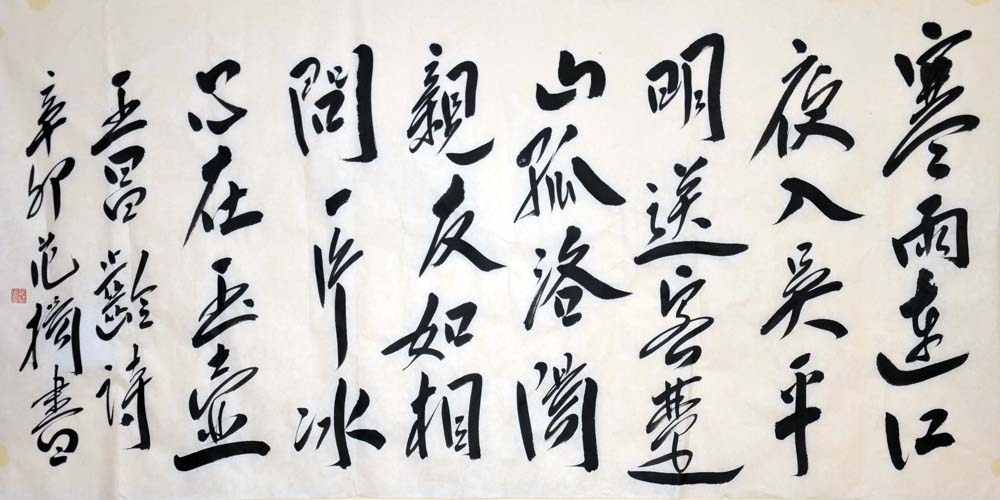 寒雨連江
夜入吳平
明送客楚
山孤洛陽
親友如相
問一片冰
心在玉壺
王昌齡詩
辛卯范摘書